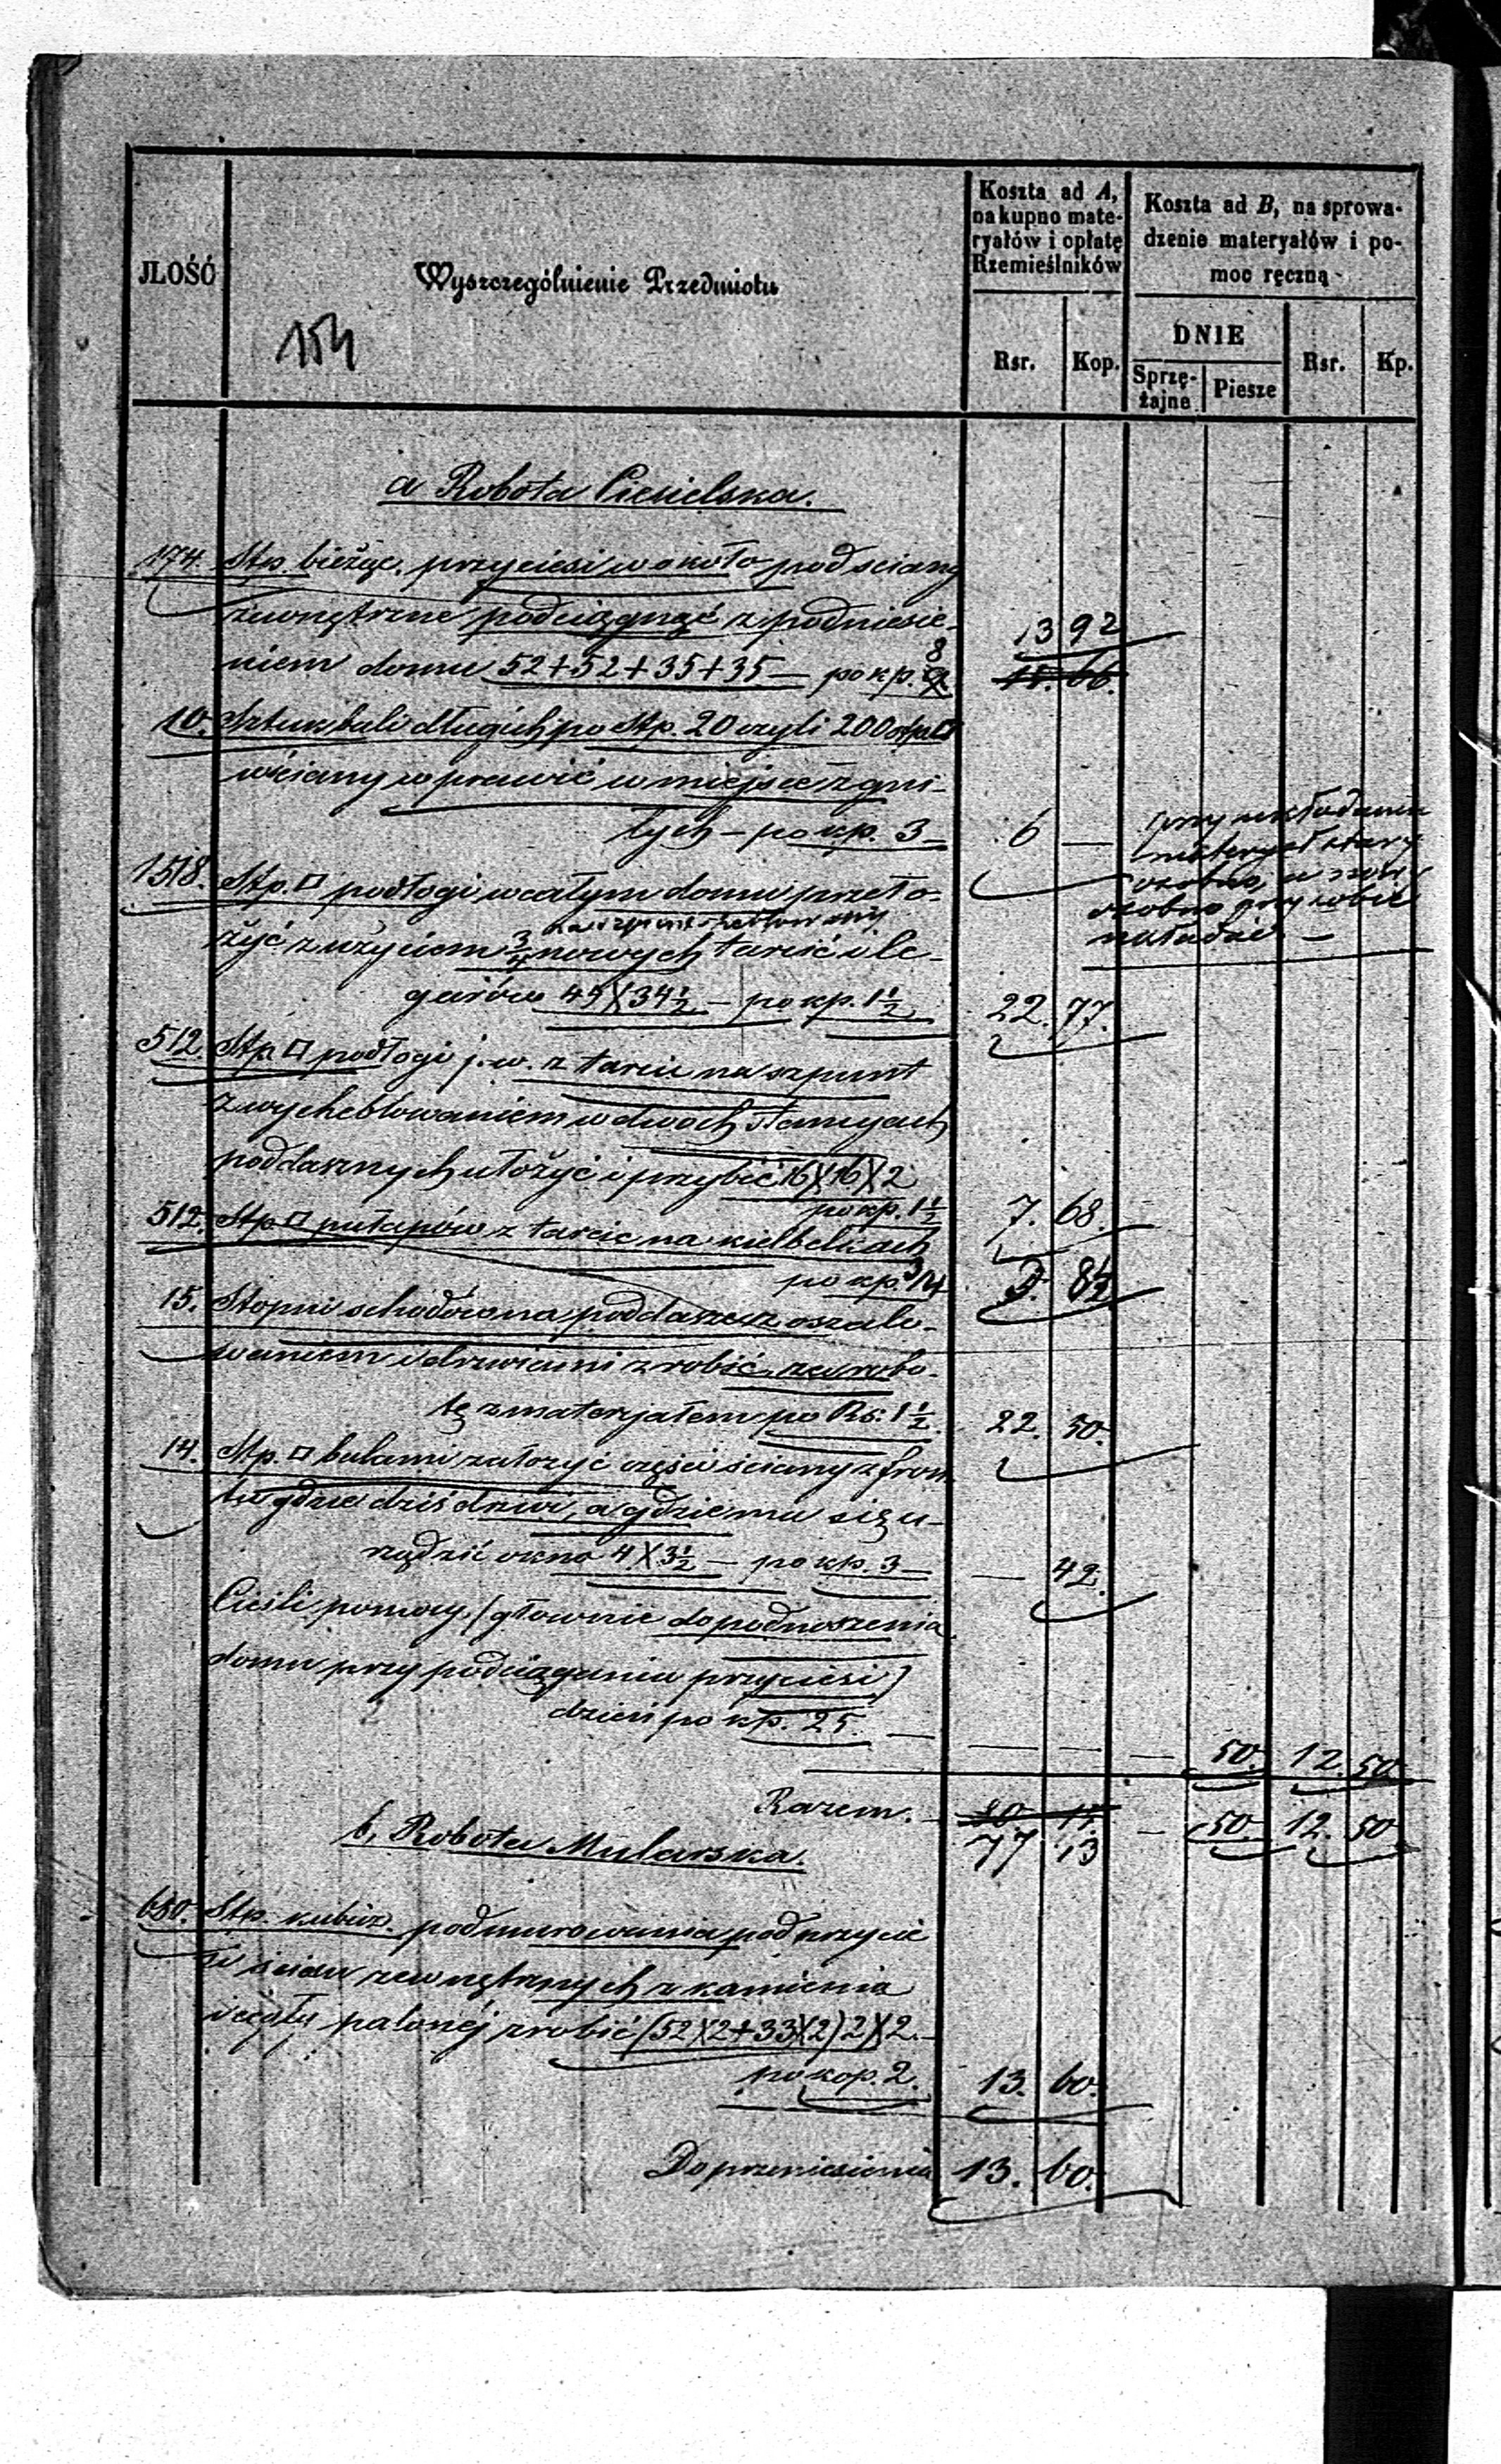 JLOŚĆ
Wyszczególnienie Przedmiotu
Koszta ad A,
na kupno mate-
ryałów i opłatę
Rzemieślników
Koszta ad B, na sprowa-
dzenie materyałów i po-
moc ręczną
DNIE
Rsr. Kop. Sprzę-
żajne Piesze Rsr. Kp.
154
a Robota Ciesielska.
174. Stp. bieżąc. przyciesi w około pod ściany
zewnętrzne podciągnąć z podniesie- 13 92
niem domu 52+52+35+35 — po kp. 8 9 15. 66.
10. Sztuk bali długich po Stp. 20 czyli 200 stp □
w ściany wprawić w miejsce zgni-
łych — po kp. 3 — 6 —
przy układaniu
materyał stary
osobno, a nowy
osobno przy robić
układać. —
1518. Stp. □ podłogi w całym domu przeło-
na szpunt heblowany
żyć z użyciem 3/4 nowych tarcic i le-
garów 44X34½ — po kp. 1½ 22. 77.
512. Stp □ podłogi j. w. z tarcic na szpunt
z wyheblowaniem w dwóch stancyach
poddasznych ułożyć i przybić 16X16X2
po kp. 1½ 7. 68.
512. Stp □ pułapów z tarcic na kielbelkach
po kp 3/4 3. 84
15. Stopni schodów na poddasze z oszalo-
waniem i drzwiami zrobić, za robo-
tę z materyałem po Rs. 1½. 22. 50.
14. Stp. □ balami założyć części ściany z fron-
tu gdzie dziś drzwi, a gdzie ma się u-
rządzić okno 4X3½ — po kp. 3 — — 42.
Cieśli pomocy (głownie do podnoszenia
domu przy podciąganiu przyciesi)
dzień po kp. 25. — — — — 50. 12. 50
Razem. — 80. 17. — 50. 12. 50
77 13
b, Robota Mularska.
680. Stp. kubicz. podmurowania pod przycie
si ścian zewnętrznych z kamienia
i cegły palonéj zrobić (52X2+33X2)2X2. —
po kop. 2. 13. 60.
Do przeniesienia 13. 60.